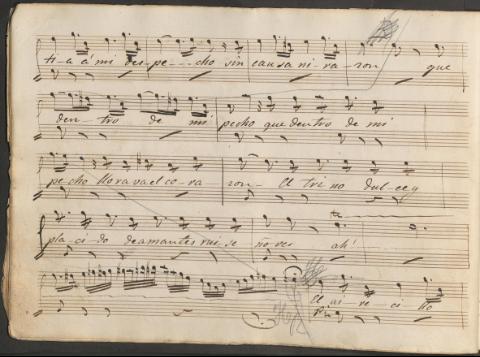 tia á mi des-pe---cho sin causa ni ra-zon que
den-tro de mi pecho que dentro de mi
pe-cho llorava el co-ra-zon- El tri no dulce y
pla-ci-do de amantes rui-se-ñores ah!
El ai-re-ci-llo